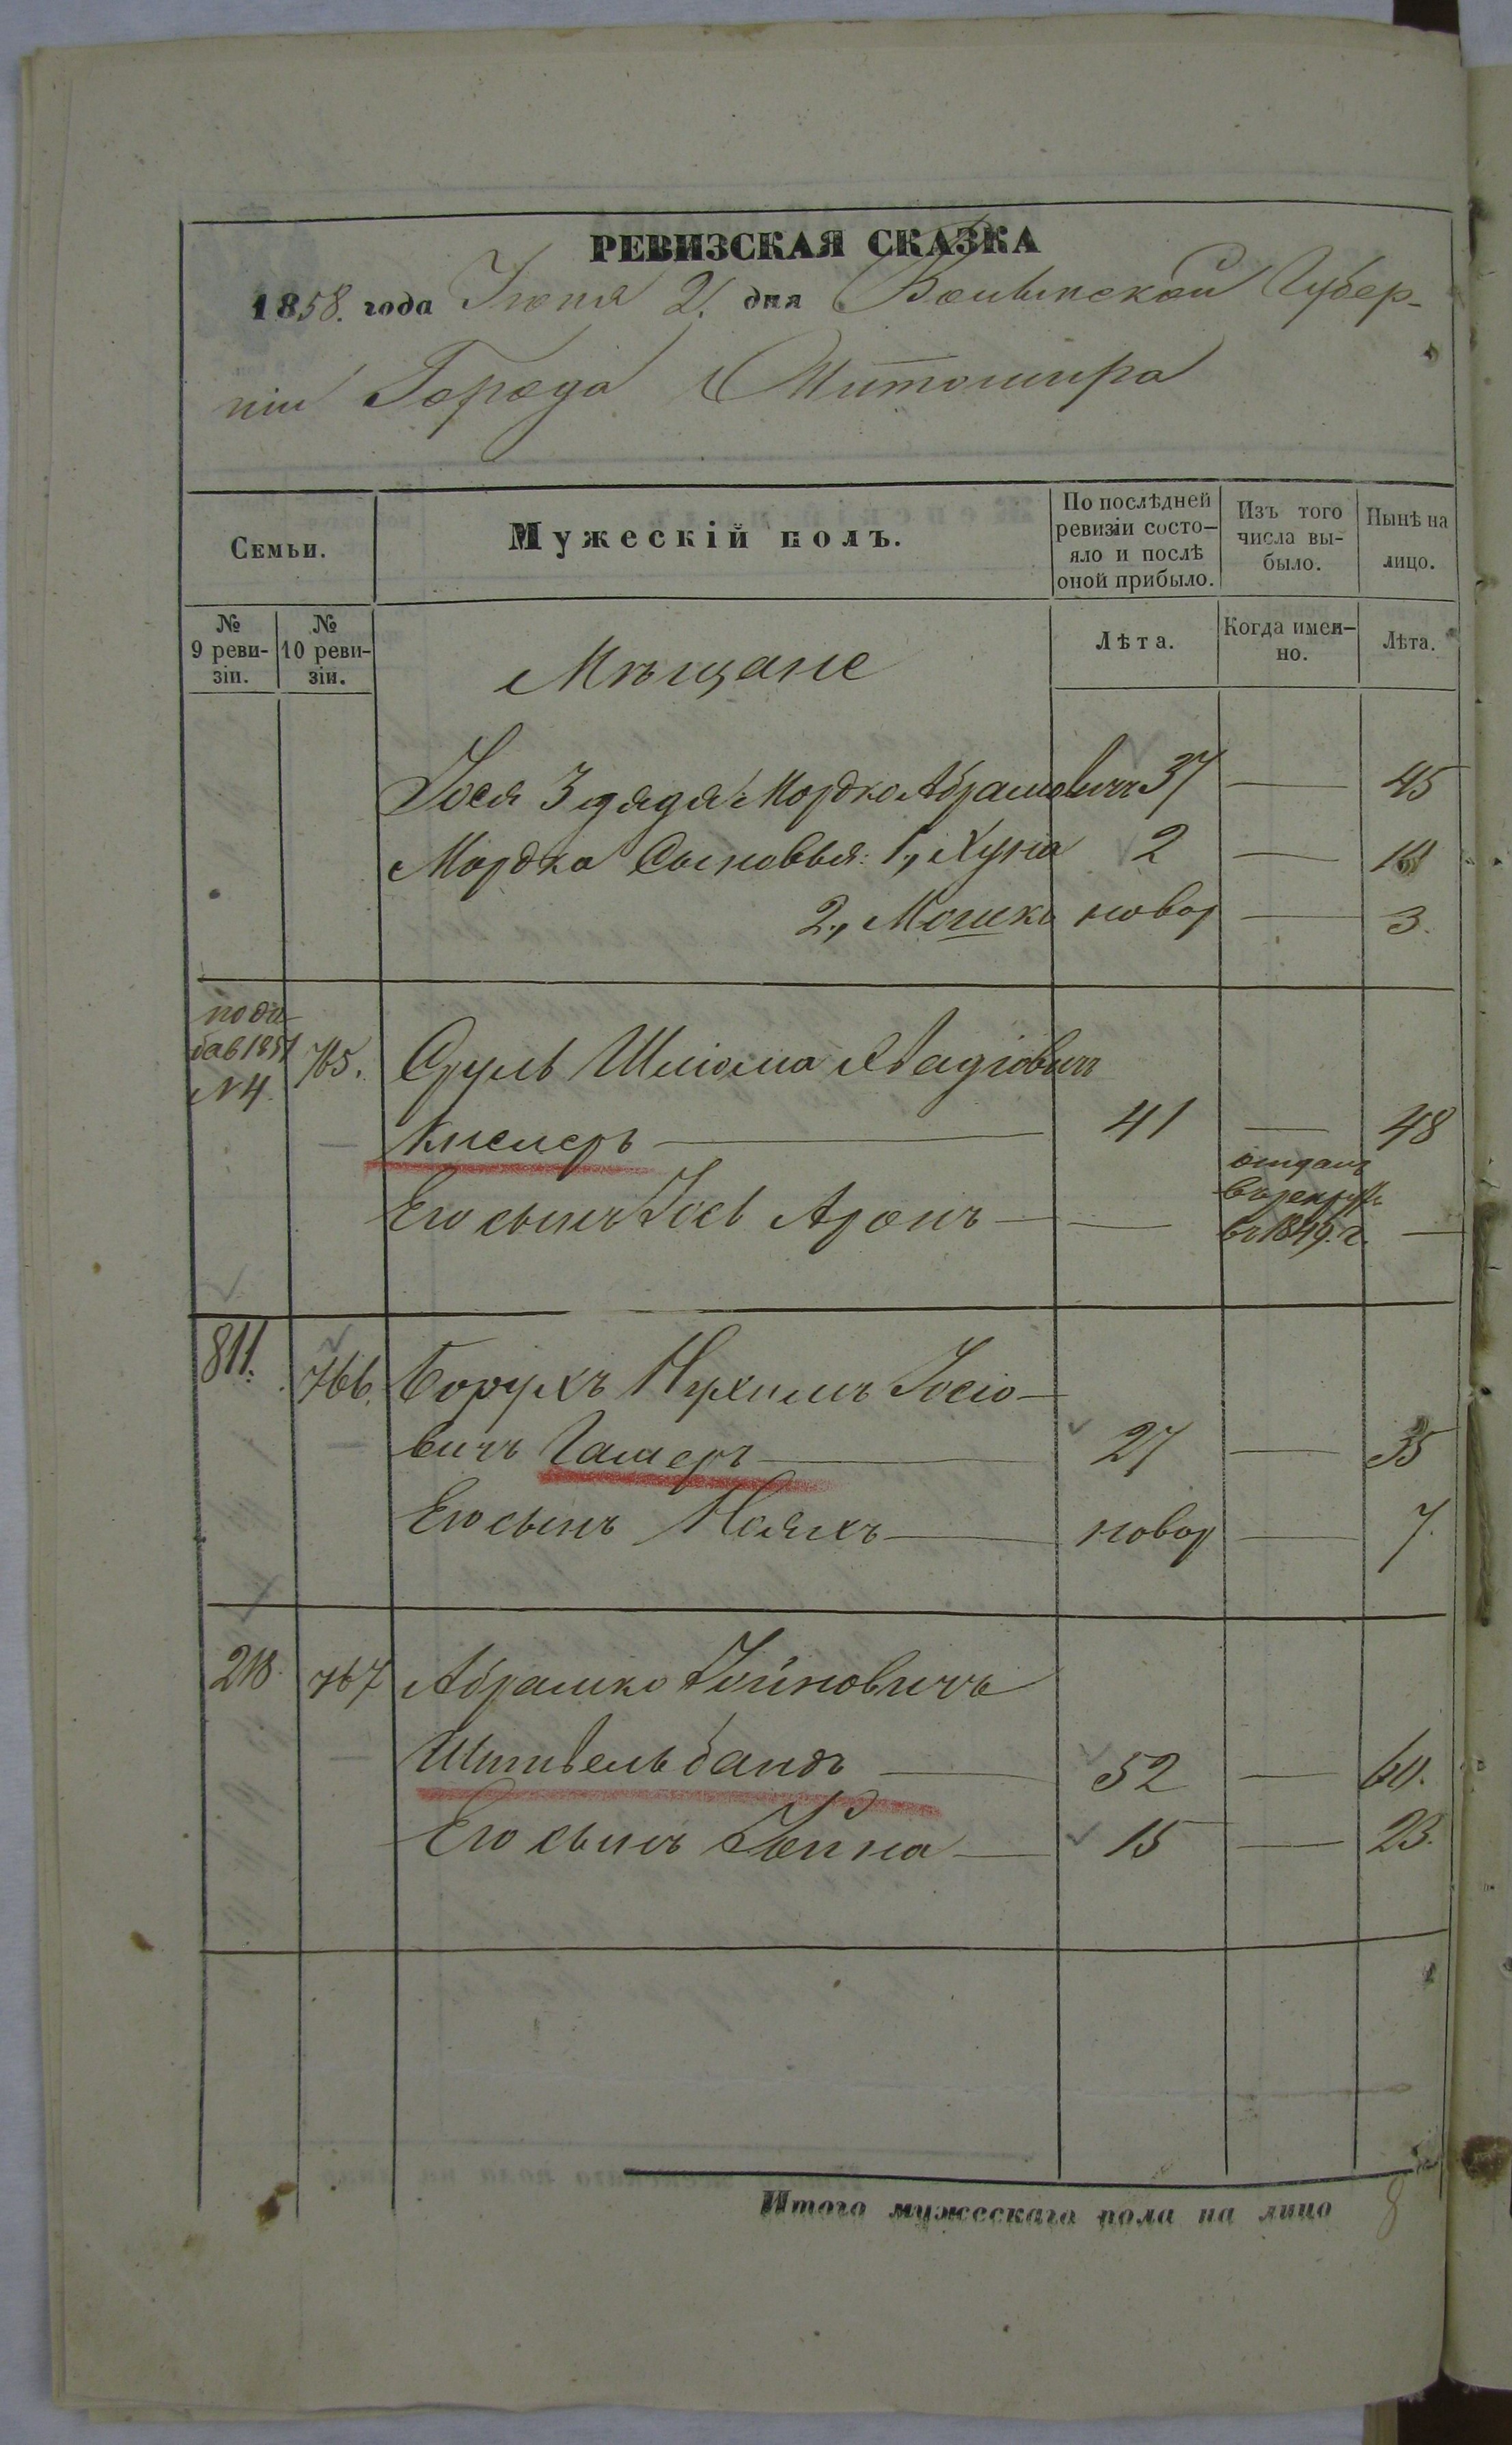 РЕВИЗСКАЯ СКАЗКА
1858. года Іюня 2. дня Волынской Губер-
ніи Города Житомира
Семьи.
Мужескій полъ.
По послѣдней ревизіи состо-яло и послѣ оной прибыло.
Изъ того числа вы-было.
Нынѣ на лицо.
№ 9 реви-зіи.
№ 10 реви-зіи.
Мѣщане
Лѣта.
Когда имен-но.
Лѣта.
Іося 3 дядя Мордко Абрамовичъ 37 — 45
Мордка Сыновья: 1., Хуна 2 — 10
2., Мошко новор — 3.
по до-
бав 1851
№ 4. 765. Сруль Шліома
Кнелеръ — 41 — 48
Его сынъ Іось Аронъ — — отданъ
въ рекруты
въ 1849. г. —
811. 766. Борухъ Нухимъ Іосіо-
вичъ Галперъ — 27 — 35
Его сынъ — новор — 7.
218. 767 Абрамко Іойновичъ
Шттвельбандъ — 52 — 60.
Его сынъ Іойна — 15 — 23.
Итого мужескаго пола на лицо 8